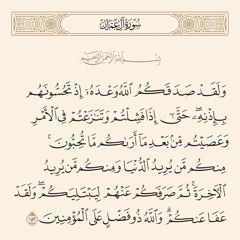 سُورَةُ آلِ عِمْرَان
بِسْمِ اللَّهِ الرَّحْمَٰنِ الرَّحِيمِ
وَلَقَدْ صَدَقَكُمُ ٱللَّهُ وَعْدَهُۥٓ إِذْ تَحُسُّونَهُم
بِإِذْنِهِۦۖ حَتَّىٰٓ إِذَا فَشِلْتُمْ وَتَنَٰزَعْتُمْ فِى ٱلْأَمْرِ
وَعَصَيْتُم مِّنۢ بَعْدِ مَآ أَرَىٰكُم مَّا تُحِبُّونَۚ
مِنكُم مَّن يُرِيدُ ٱلدُّنْيَا وَمِنكُم مَّن يُرِيدُ
ٱلْءَاخِرَةَۚ ثُمَّ صَرَفَكُمْ عَنْهُمْ لِيَبْتَلِيَكُمْۖ وَلَقَدْ
عَفَا عَنكُمْۗ وَٱللَّهُ ذُو فَضْلٍ عَلَى ٱلْمُؤْمِنِينَ ١٥٢